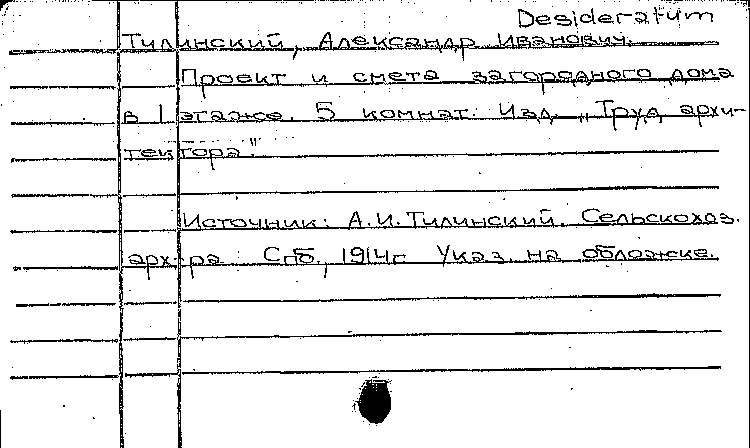 Desideratum
Тилинский, Александр Иванович.
Проект и смета загородного дома
в 1 этаже. 5 комнат. Изд. „Труд архи-
тектора"
Источник: А.И.Тилинский. Сельскохоз.
арх-ра Спб., 1914г Указ. на обложке.